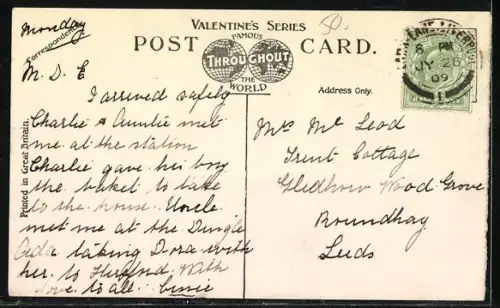 Monday
Correspondence
VALENTINE'S SERIES
50.
FAMOUS
POST CARD.
THROUGHOUT
THE
WORLD
Address Only.
Printed in Great Britain.
PARK LANE LIVERPOOL
8 PM
JY 26
09
1
M. D. E
I arrived safely
Charlie & Auntie met
me at the station
Charlie gave his boy
the basket to take
to the house. Uncle
met me at the Dingle
Ada taking Dora with
her to With
love to all.
Mrs Mc Leod
Trent Cottage
Gledhow Wood Grove
Roundhay
Leeds